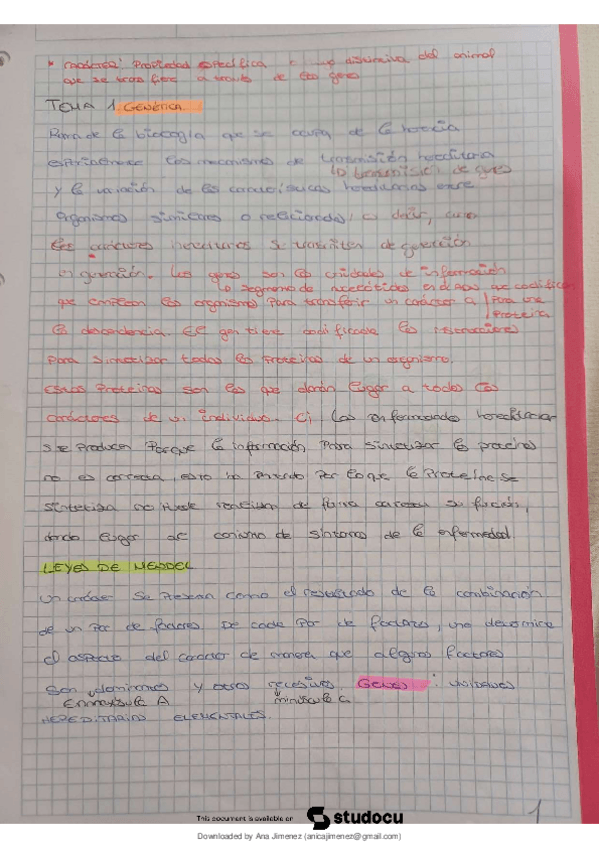 * carácter: Propiedad específica e distintiva del animal
que se transfiere a través de los genes
TEMA 1 GENÉTICA
Rama de la biología que se ocupa de la herencia
los mecanismos de transmisión hereditaria
↳ transmisión de genes
y la variación de las características hereditarias entre
organismos similares o relacionados, es decir, como
los caracteres se transmiten de generación
en generación. Los genes son las unidades de información
↳ segmento de nucleótidos en el ADN que codifican
que emplean los organismos para transferir un carácter a
para una
Proteína
la descendencia. El gen tiene codificada las instrucciones
para sintetizar todas las proteínas de un organismo.
estas Proteínas son las que darán lugar a todos los
carácteres de un individuo. las enfermedades hereditarias
se producen Porque la información Para sintetizar la proteína
no es correcta, por lo que la Proteína se
sintetiza no puede realizar de forma su función,
dando lugar al de síntomas de la enfermedad
LEYES DE MENDEL
un se como el resultado de la combinación
de un par de factores. De cada par de factores, uno
el aspecto del carácter de manera que algunos factores
Son dominantes y otros recesivos GENES: UNIDADES
En mayúscula A minúscula
HEREDITARIAS ELEMENTALES.
1
This document is available on studocu
Downloaded by Ana Jimenez (anicajimenez@gmail.com)